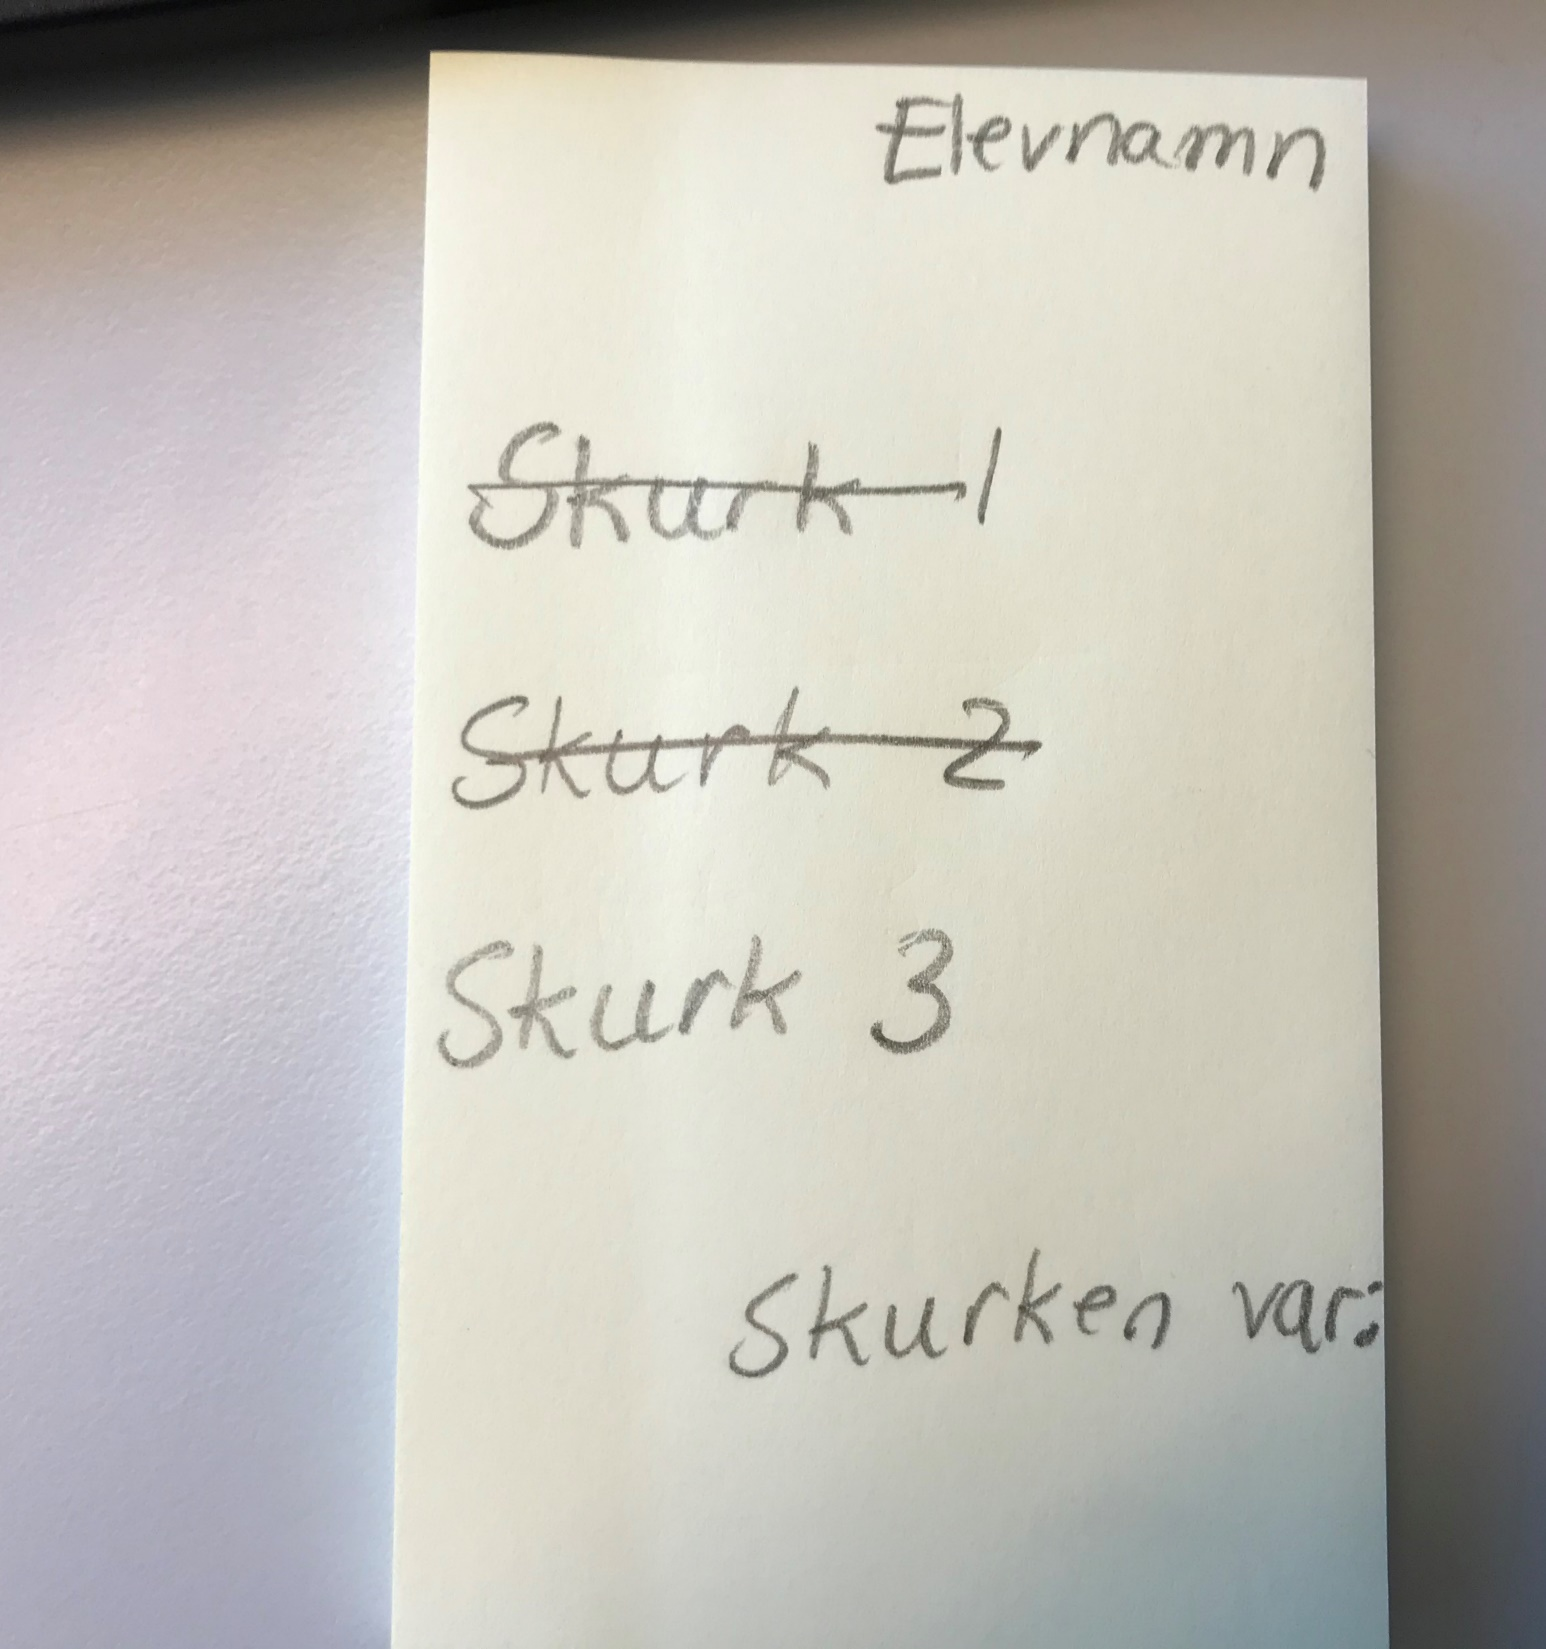 Elevnamn
Skurk 1
Skurk 2
Skurk 3
Skurken var: